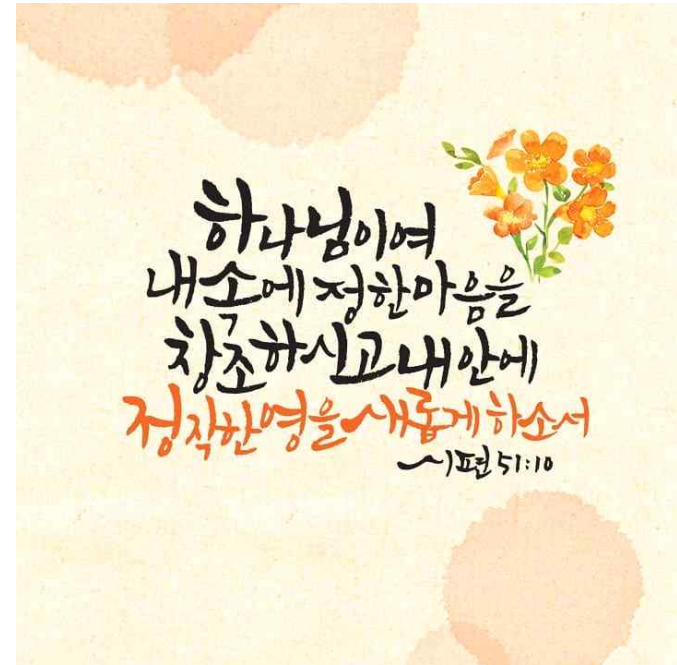 하나님이여
내 속에 정한 마음을
창조하시고 내 안에
정직한 영을 새롭게 하소서
시편 51:10